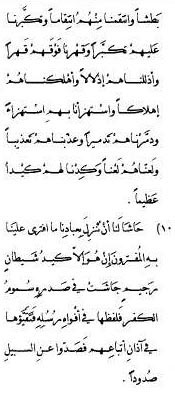 بَطْشًا وانتقمنا مِنْهُمُ انتِقَامًا وتكبَّرنا
عليهِمْ تكَبُّرًا وقهرنا فَوْقَهُمْ قَهْرًا
وأذللناهُمْ إذْلالًا وأهلكناهُمْ
إهلاكًا واستهزأنا بِهِمِ استهزاءً
ودمَّرناهُمْ تدميرًا وعذّبناهُمْ تعذيبًا
ولعنّاهُمْ لَعْنًا وكِدْنا لهُمْ كيْدًا
عظيمًا .
١٠) حَاشَا لَنَا أنْ نُنْزِلَ بعِبادِنَا ما افترى علينا
بِهِ المفترونَ إنْ هُوَ إلّا كَيْدُ شَيطانٍ
رجيمٍ جَاشَتْ في صَدرِهِ سُمُومُ
الكفرِ فلفظها في أفواهِ رُسُلِهِ فَتَقَيَّؤُها
في آذانِ أتباعِهِمْ فَصَدُّوا عنِ السبيلِ
صُدُودًا .